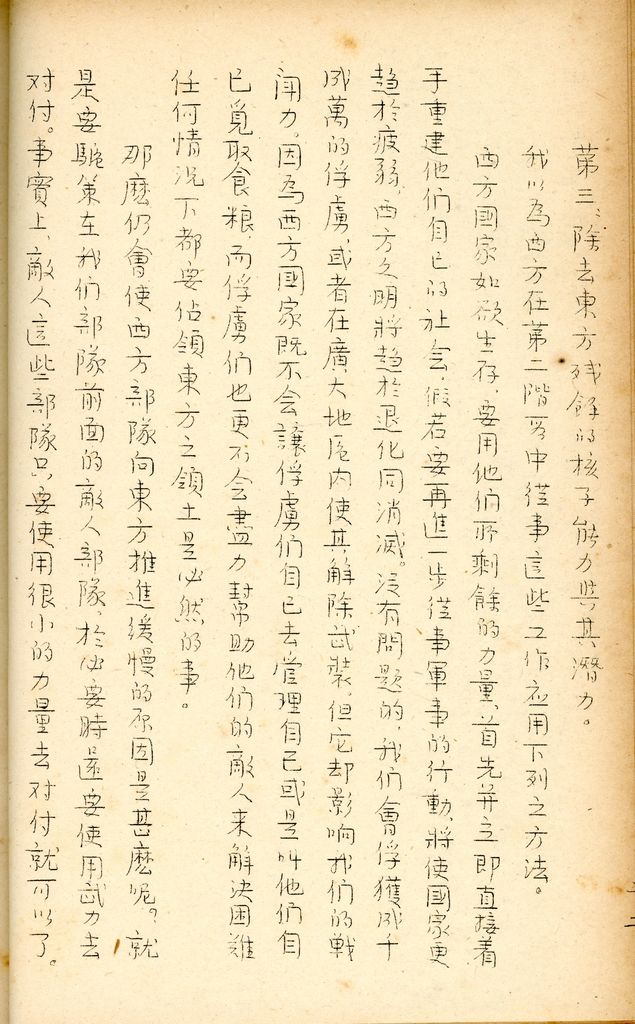 第三、除去東方残餘的核子能力與其潛力。
我以為西方在第二階段中從事這些工作应用下列之方法。
西方國家如欲生存，要用他们所剩餘的力量，首先并立即直接着
手重建他们自己的社会，假若要再進一步從事軍事的行動，將使國家更
趋於疲弱，西方文明將趋於退化同消滅。没有問題的，我们會俘獲成千
成萬的俘虜，或者在廣大地區内使其解除武装，但它却影响我们的戰
闘力。因為西方國家既不会讓俘虜们自己去管理自己或是叫他们自
己覓取食粮，而俘虜们也更不会盡力幫助他们的敵人来解決困难
任何情況下都要佔領東方之領土是必然的事。
那麼仍會使西方部隊向東方推進緩慢的原因是甚麼呢？就
是要驅策在我们部隊前面的敵人部隊，於必要時還要使用武力去
对付。事實上，敵人這些部隊只要使用很小的力量去对付就可以了。
二